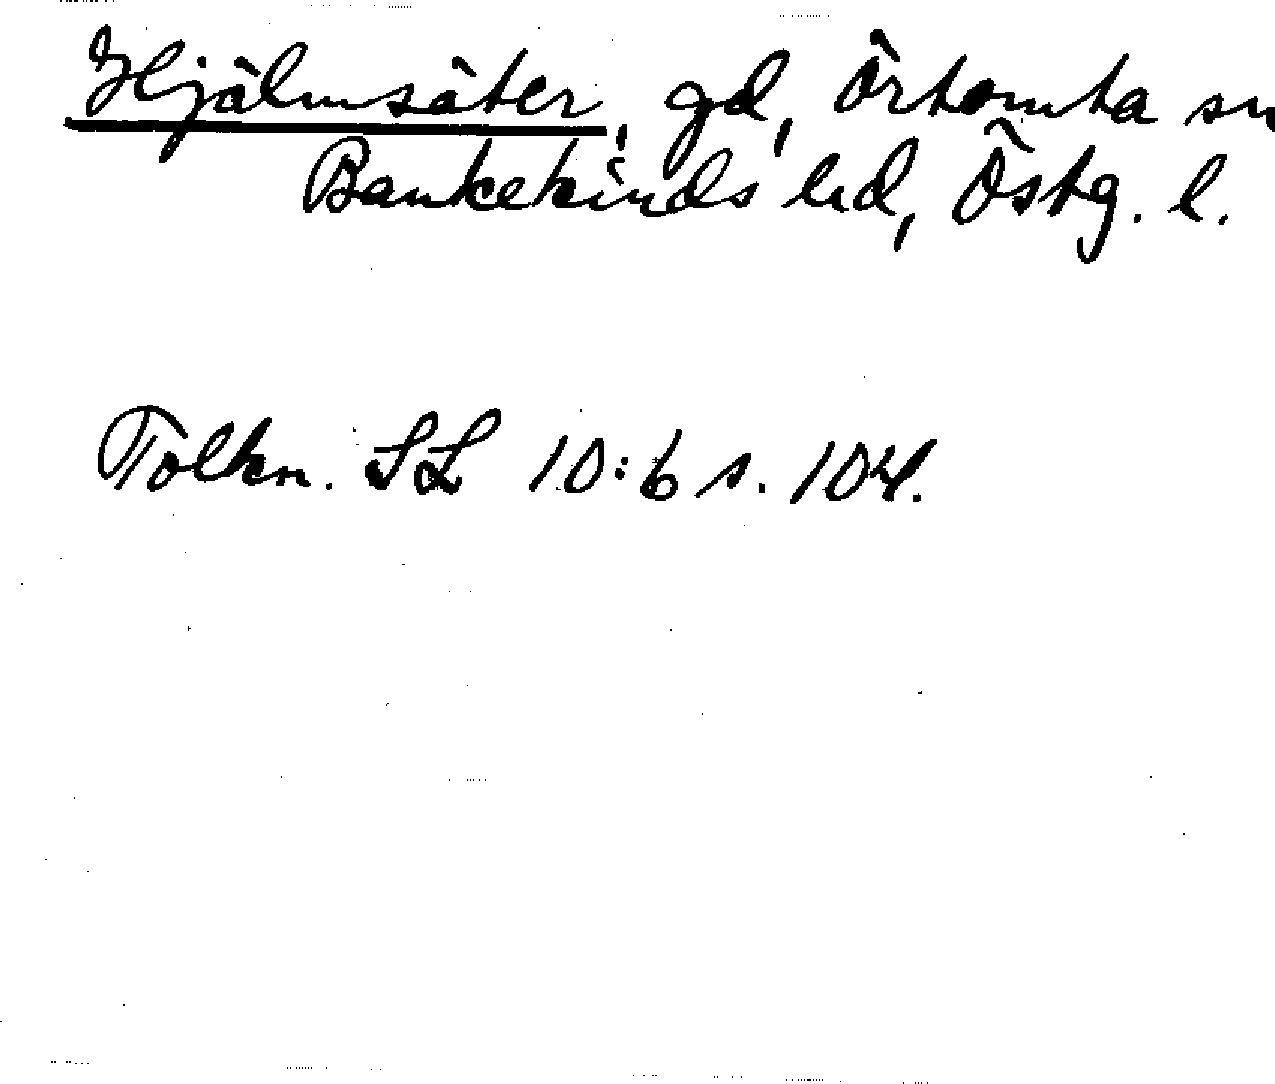 Hjälmsäter, gd, Örtomta sn
Bankekinds hd, Östg. l.
Tolkn. SL 10:6 s. 104.